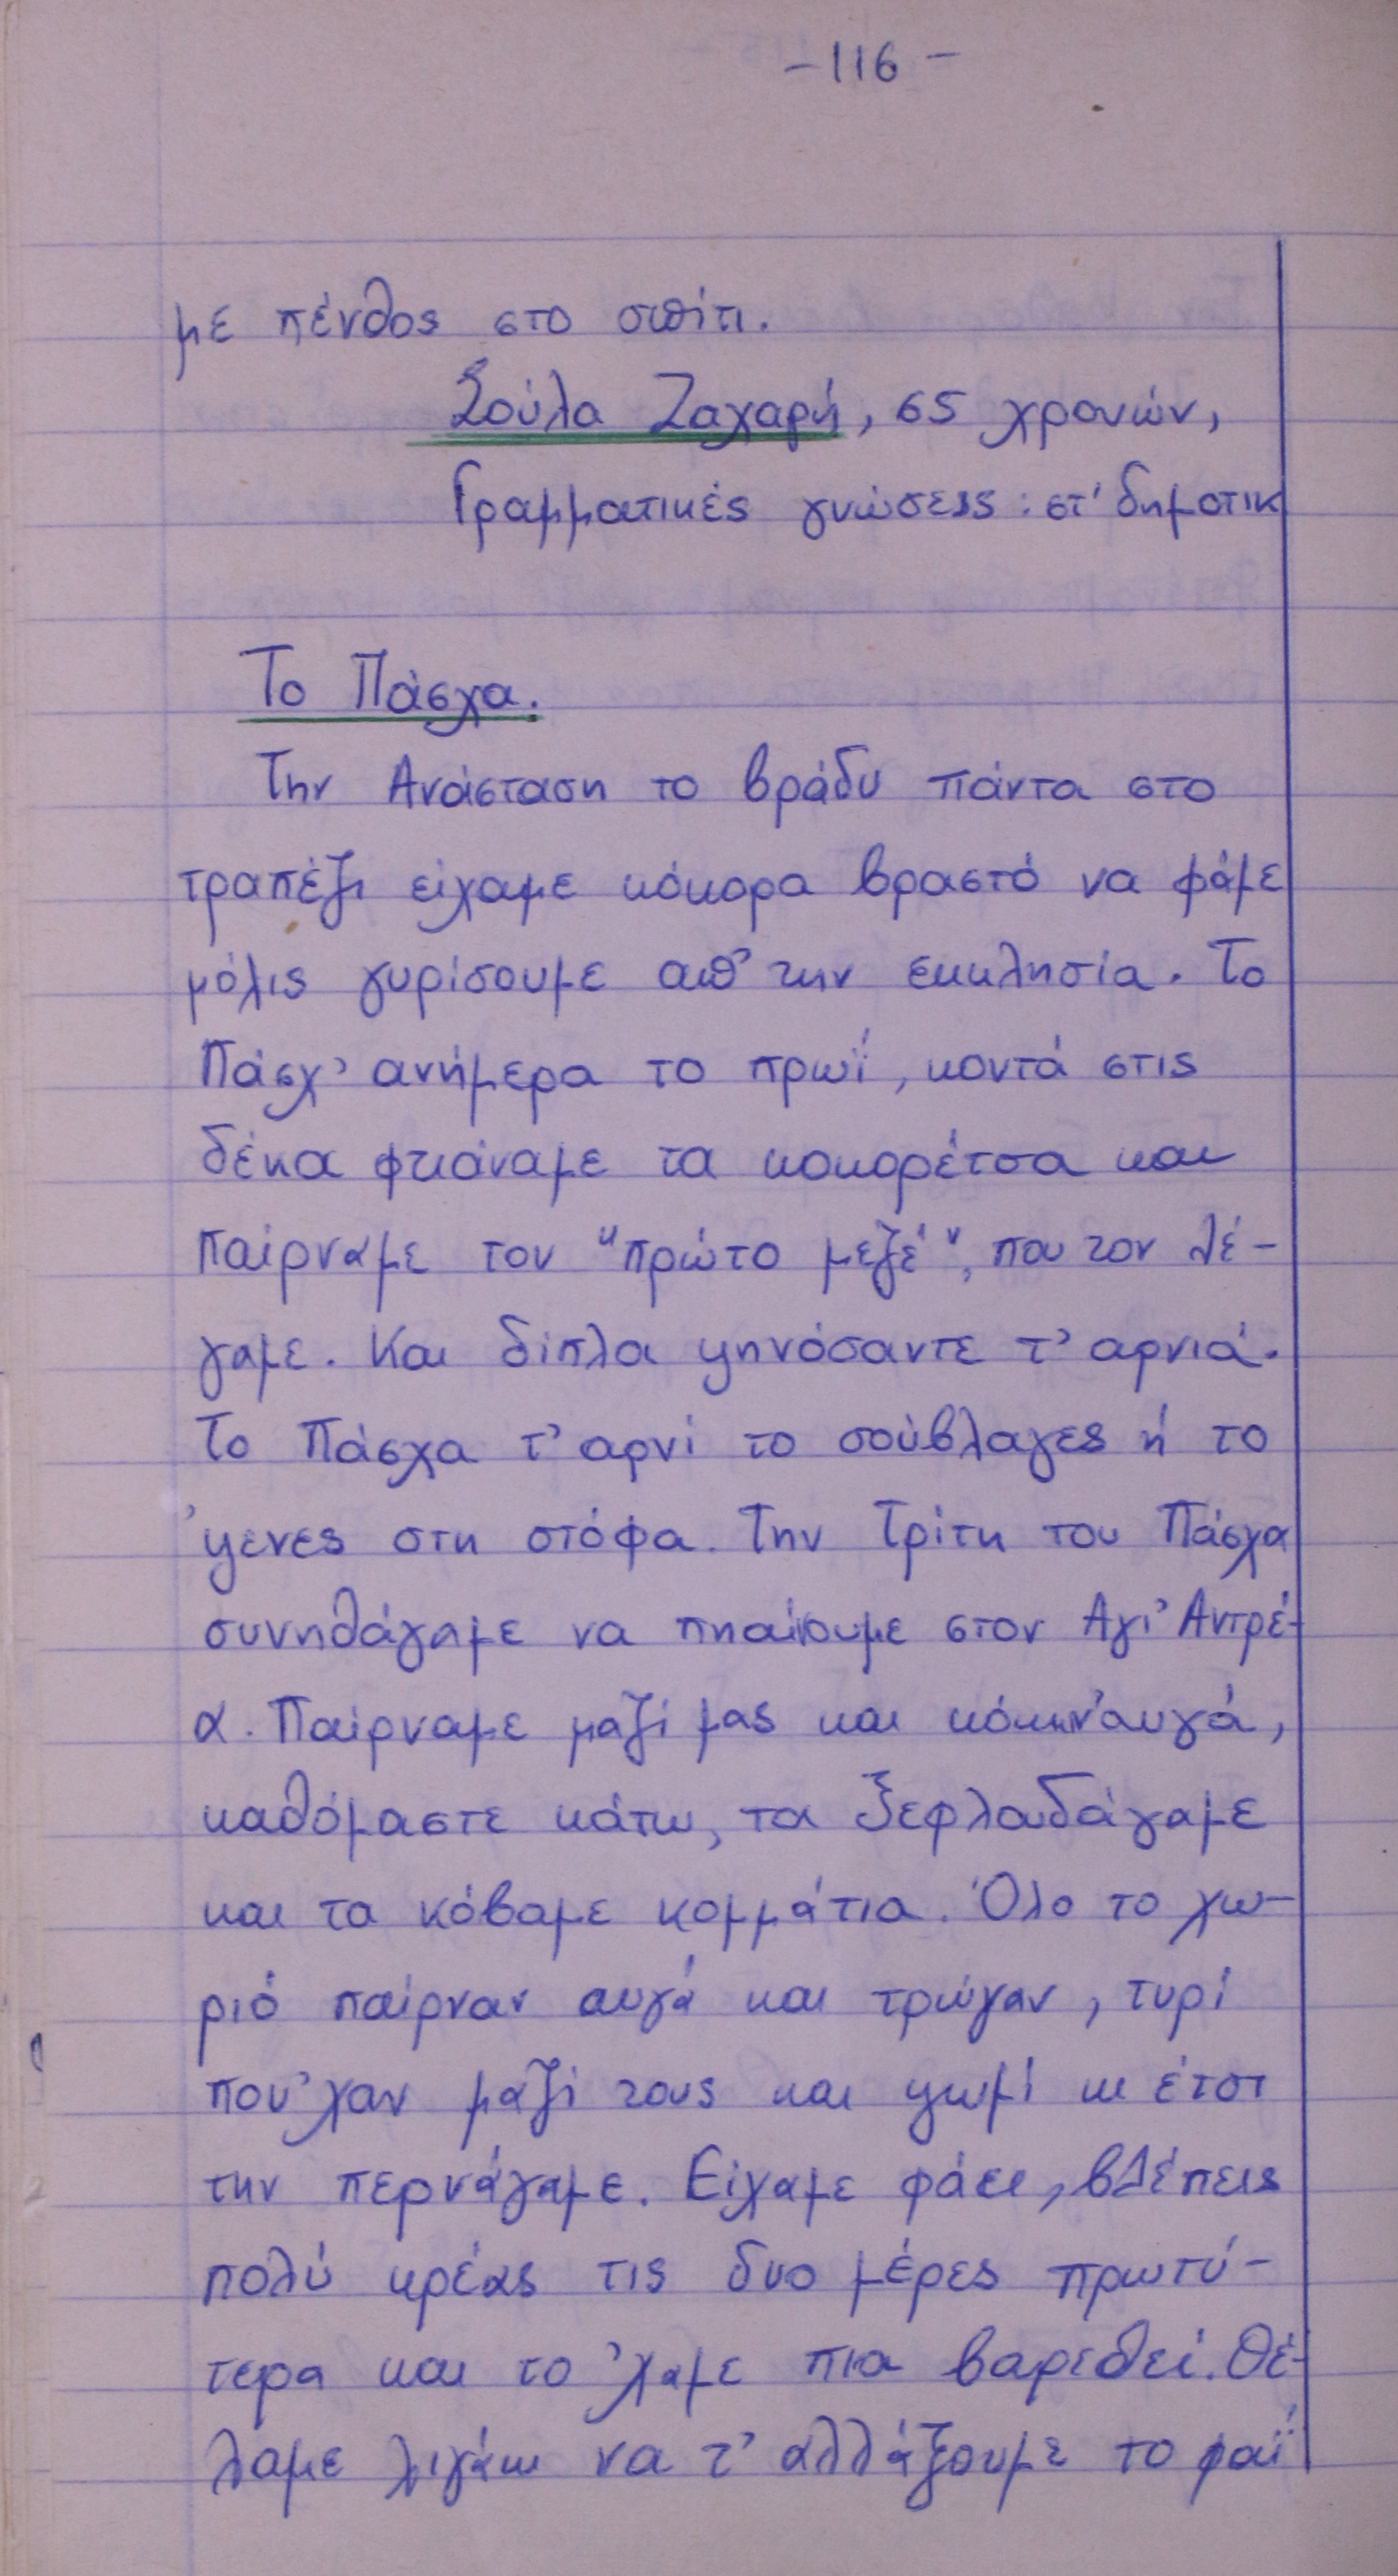 -116-
με πένθος στο σπίτι.
Σούλα Ζαχαρή, 65 χρονών,
Γραμματικές γνώσεις: στ' δημοτικ
Το Πάσχα.
Την Ανάσταση το βράδυ πάντα στο
τραπέζι είχαμε κόκορα βραστό να φάμε
μόλις γυρίσουμε απ' την εκκλησία. Το
Πάσχ' ανήμερα το πρωΐ, κοντά στις
δέκα φτιάναμε τα κοκορέτσα και
παίρναμε τον "πρώτο μεζέ", που τον λέ-
γαμε. Και δίπλα ψηνόσαντε τ' αρνιά.
Το Πάσχα τ' αρνί το σούβλαγες ή το
'ψενες στη στόφα. Την Τρίτη του Πάσχα
συνηθάγαμε να πηαίνουμε στον Αγι' Αντρέ-
α. Παίρναμε μαζί μας και κόκκιν' αυγά,
καθόμαστε κάτω, τα ξεφλουδάγαμε
και τα κόβαμε κομμάτια. Όλο το χω-
ριό παίρναν αυγά και τρώγαν, τυρί
που 'χαν μαζί τους και ψωμί κι έτσι
την περνάγαμε. Είχαμε φάει, βλέπεις
πολύ κρέας τις δυο μέρες πρωτύ-
τερα και το 'χαμε πια βαρεθεί. Θέ-
λαμε λιγάκι να τ' αλλάξουμε το φαΐ